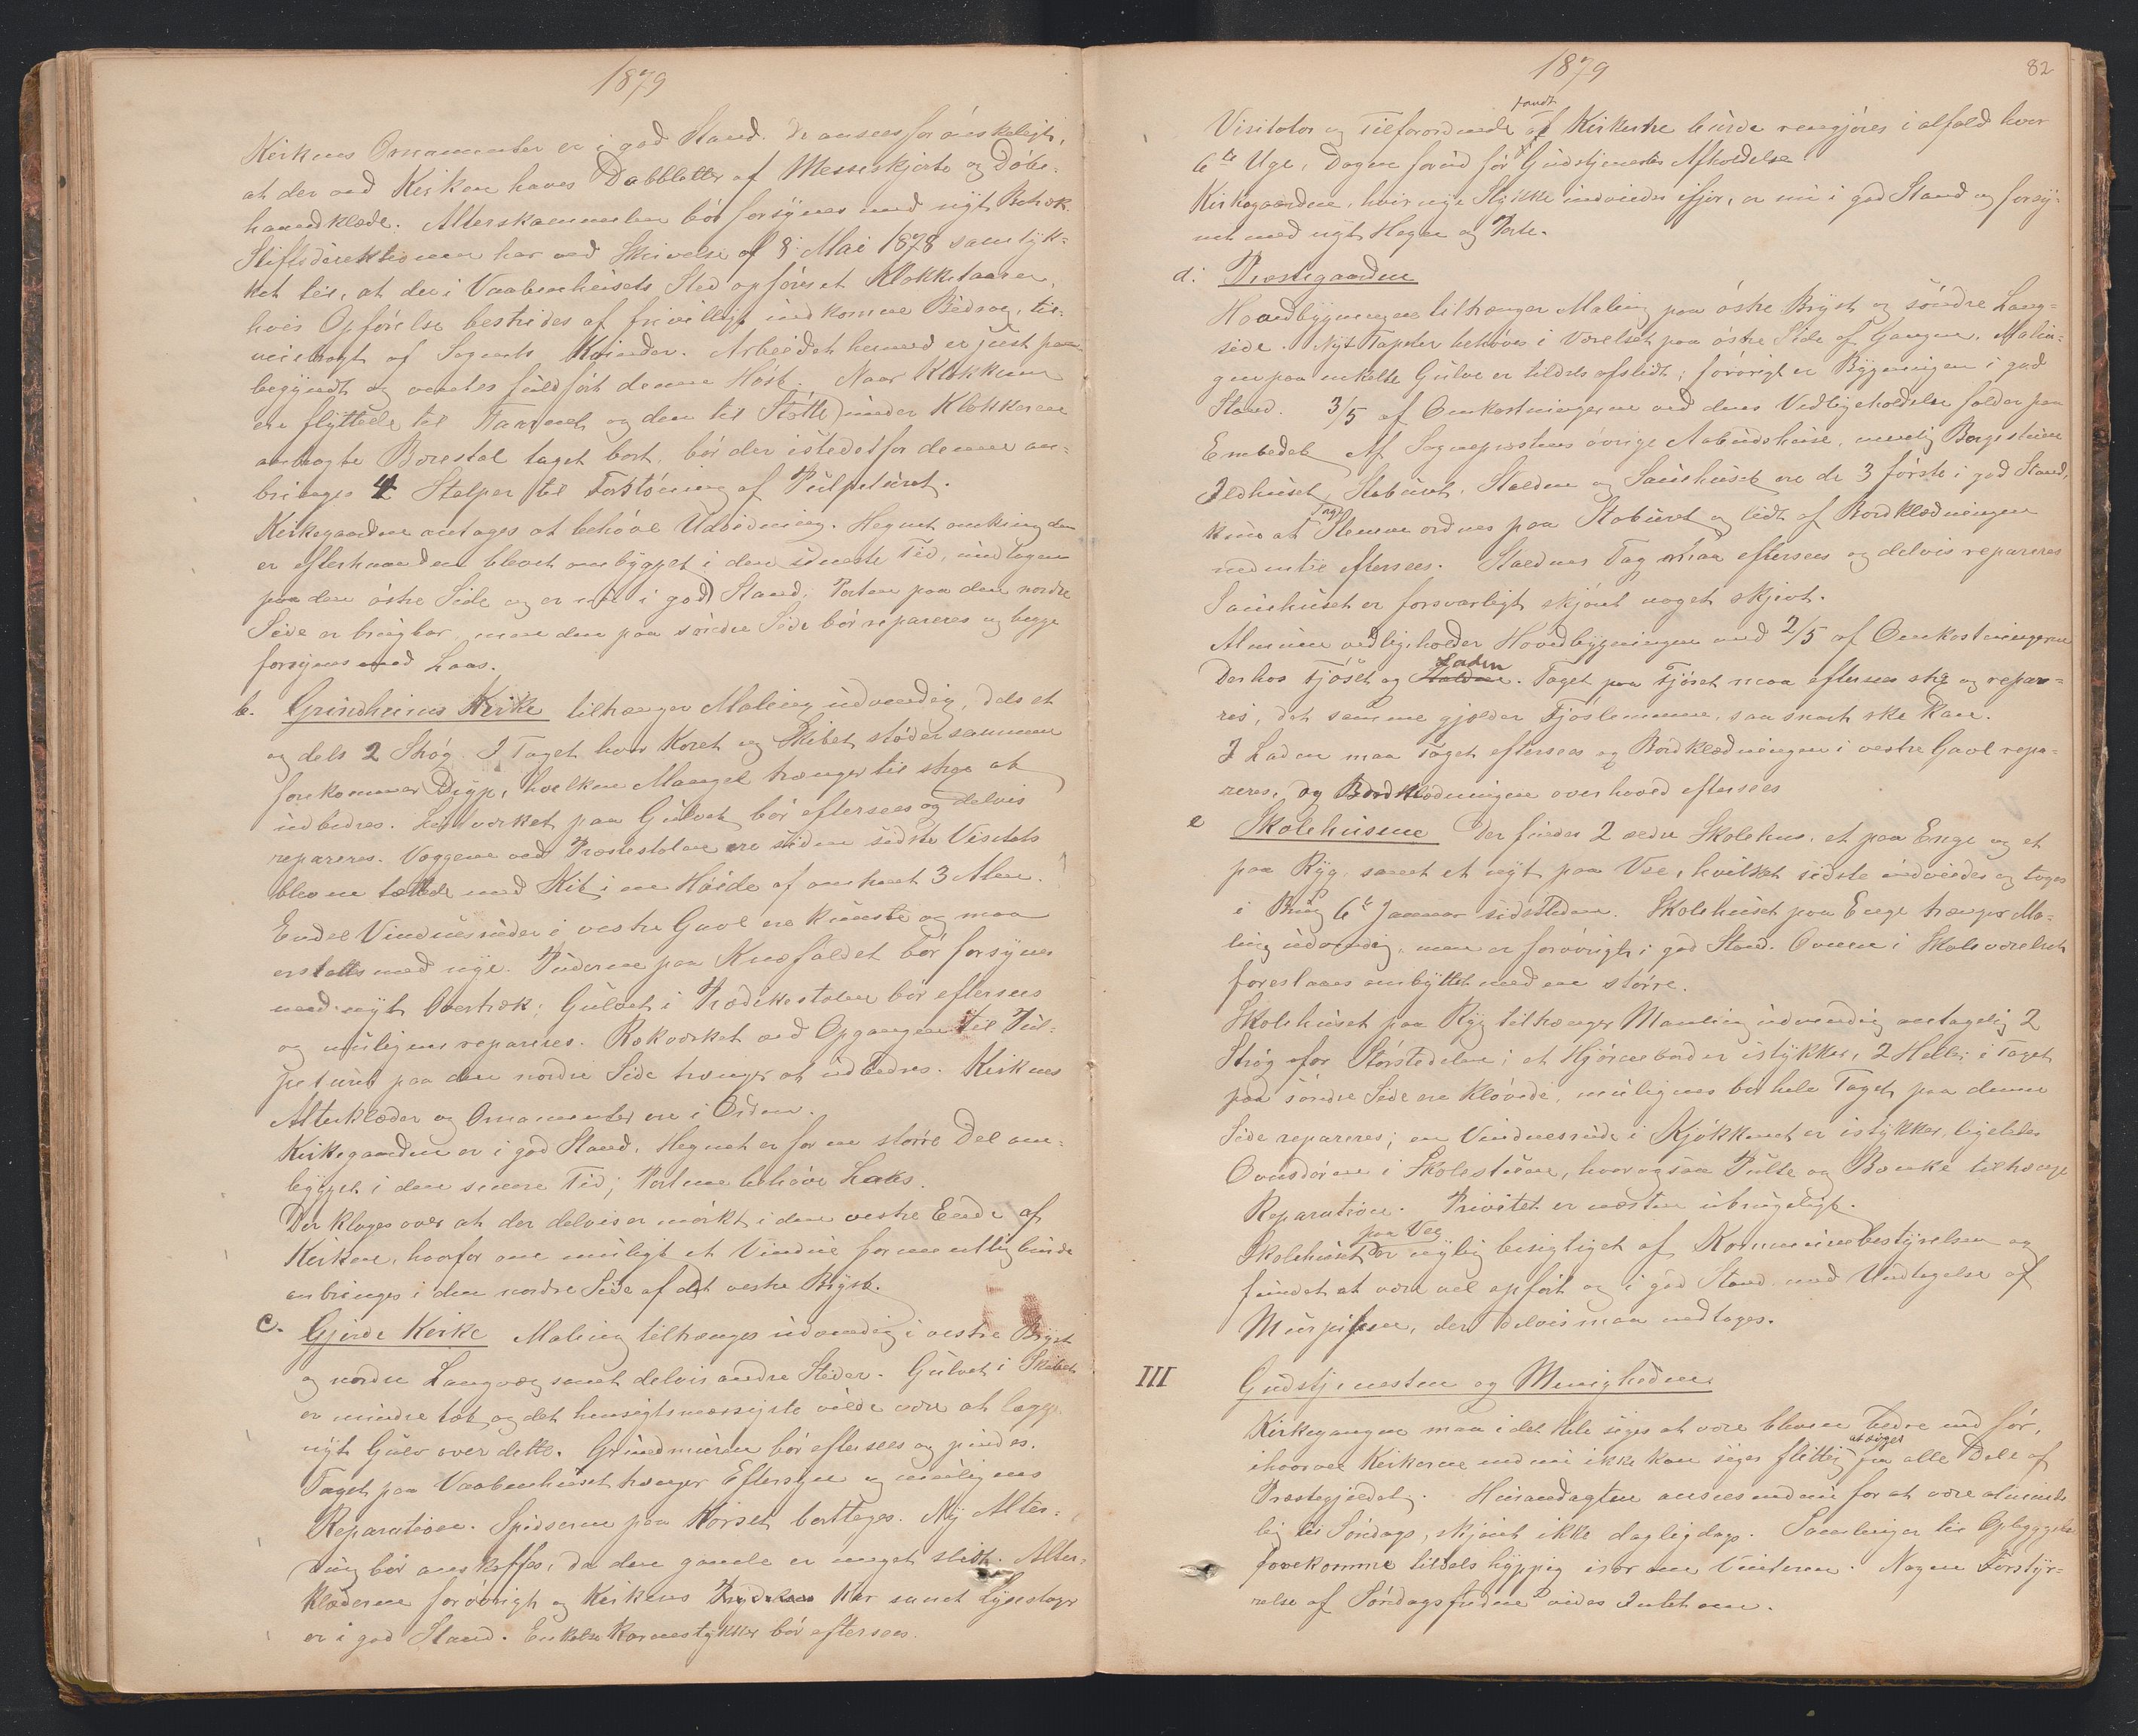 1879
Kirkens Ornamenter er i god Stand. De ansees for ønskeligt,
at der ved Kirken haves Dubbletter af Messeskjorte og Døbe-
haandklæde. Alterskammelen bør forsynes med nyt Betræk.
Stiftsdirektionen har ved Skrivelse af 8 Mai 1878 samtyk-
ket til, at der i Vaabenhusets Sted opføres et Klokketaarn,
hvis Opførelse bestrides af frivilligt indkomne Bidrag, til-
veiebragt af Sognets Kvinder. Arbeidet hermed er just paa-
begyndt og ventes fuldført denne Høst. Naar Klokkerne
ere flyttede til Taarnet og den til Støtte under Klokkerne
anbragte Borestol taget bort, bør der istedetfor denne an-
bringes 4 Stolper til Forstøining af Pulpeturet.
Kirkegaarden antages at behøve Udvidning. Hegnet omkring den
er efterhaanden blevet ombygget i den seneste Tid, undtagen
paa den østre Side og er nu i god Stand; Porten paa den nordre
Side er brugbar, men den paa søndre Side bør repareres og begge
forsynes med Laas.
b. Grindheims Kirke tiltrænger Maling udvendig, dels et
og dels 2 Strøg. I Taget hvor Koret og Skibet støder sammen
forekommer Dryp, hvilken Mangel trænger til strax at
udbedres. Listværket paa Gulvet bør eftersees og delvis
repareres. Væggene ved Præstestolen ere siden sidste Visitats
blevne tættede med Kit i en Høide af omtrent 3 Alen.
Endel Vinduesruder i vestre Gavl ere knuste og maa
erstattes med nye. Puderne paa Knæfaldet bør forsynes
med nyt Overtræk; Gulvet i Prædikestolen bør eftersees
og muligens repareres. Rækværket ved Opgangen til Pul-
peturet paa den nordre Side trænger at udbedres. Kirkens
Alterklæder og Ornamenter ere i Orden.
Kirkegaarden er i god Stand. Hegnet er for en større Del om-
bygget i den senere Tid; Portene behøve Laas.
Der klages over at der delvis er mørkt i den vestre Ende af
Kirken, hvorfor om muligt et Vindue formentlig burde
anbringes i den nordre Side af det vestre Bryst.
c. Gjerde Kirke Maling tiltrænges udvendig i vestre Bryst
og nordre Langvæg samt delvis andre Steder. Gulvet i Skibet
er mindre tæt og det hensigtsmæssigste vilde være at lægge
nyt Gulv over dette. Grundmuren bør eftersees og pindes.
Taget paa Vaabenhuset trænger Eftersyn og muligens
Reparation. Spidserne paa Korset borttages. Ny Alter-
dug bør anskaffes, da den gamle er meget slidt. Alter-
klæderne forøvrigt og Kirkens Kar samt Lysestager
er i god Stand. Enkelte Karmestykker bør eftersees.
1879
82
fandt
Visitator og Tilforordnede at Kirkerne burde rengjøres i alfald hver
6te Uge, Dagen forud før Gudstjenestes Afholdelse.
Kirkegaarden, hvis nye Stykke indviedes ifjor, er nu i god Stand og forsy-
net med nyt Hegn og Port.
d. Præstegaarden
Hovedbygningen tiltrænger Maling paa østre Bryst og søndre Lang-
side. Nyt Tapeter behøves i Værelset paa østre Side af Gangen. Malin-
gen paa enkelte Gulve er tildels afslidt; forøvrigt er Bygningen i god
Stand. 3/5 af Omkostningerne ved dens Vedligeholdelse falder paa
Embedet. Af Sognepræstens øvrige Aabodshuse, nemlig Borgestuen
Ildhuset, Stabburet, Stalden og Sauehuset ere de 3 første i god Stand,
Tag
kun at Stenene ordnes paa Stabburet og lidt af Bordklædningen
nedentil eftersees. Staldens Tag maa eftersees og delvis repareres
Sauehuset er forsvarligt skjønt noget skjevt.
Almuen vedligeholder Hovedbygningen med 2/5 af Omkostningerne
Laden
Derhos Fjøset og Stalden. Taget paa Fjøset maa eftersees strax og repare-
res, det samme gjælder Fjøslemmene, saa snart ske kan.
I Laden maa Taget eftersees og Bordklædningen i vestre Gavl repa-
reres, og Bordklædningen overhoved eftersees
e Skolehusene Der findes 2 ældre Skolehus, et paa Enge og et
paa Ryg, samt et nyt paa Vee, hvilket sidste indviedes og toges
i Brug 6te Januar sidstleden. Skolehuset paa Enge trænger Ma-
ling udvendig, men er forøvrigt i god Stand. Ovnen i Skoleværelset
foreslaaes ombyttet med en større.
Skolehuset paa Ryg tiltrænger Maling udvendig antagelig 2
Strøg for Størstedelen; et Hjørnebord er istykker, 2 Heller i Taget
paa søndre Side ere kløvede, muligens bør hele Taget paa denne
Side repareres; en Vinduesrude i Kjøkkenet er istykker, ligeledes
Ovnsdøren i Skolestuen, hvor ogsaa Pulte og Bænke tiltrænge
Reparation. Privetet er næsten ubrugeligt.
paa Vee
Skolehuset er nylig besigtiget af Kommunebestyrelsen og
fundet at være vel opført og i god Stand med Undtagelse af
Murpiben, der delvis maa nedtages.
III Gudstjenesten og Menigheden.
Kirkegangen maa i det Hele siges at være bleven bedre end før,
at søges
ihvorvel Kirkerne endnu ikke kan siges flittig fra alle Dele af
Præstegjeldet. Husandagten ansees endnu for at være alminde-
lig til Søndags, skjønt ikke dagligdags. Samlinger til Opbyggelse
forekomme tildels hyppig især om Vinteren. Nogen Forstyr-
relse af Søndagsfreden vides Intet om.